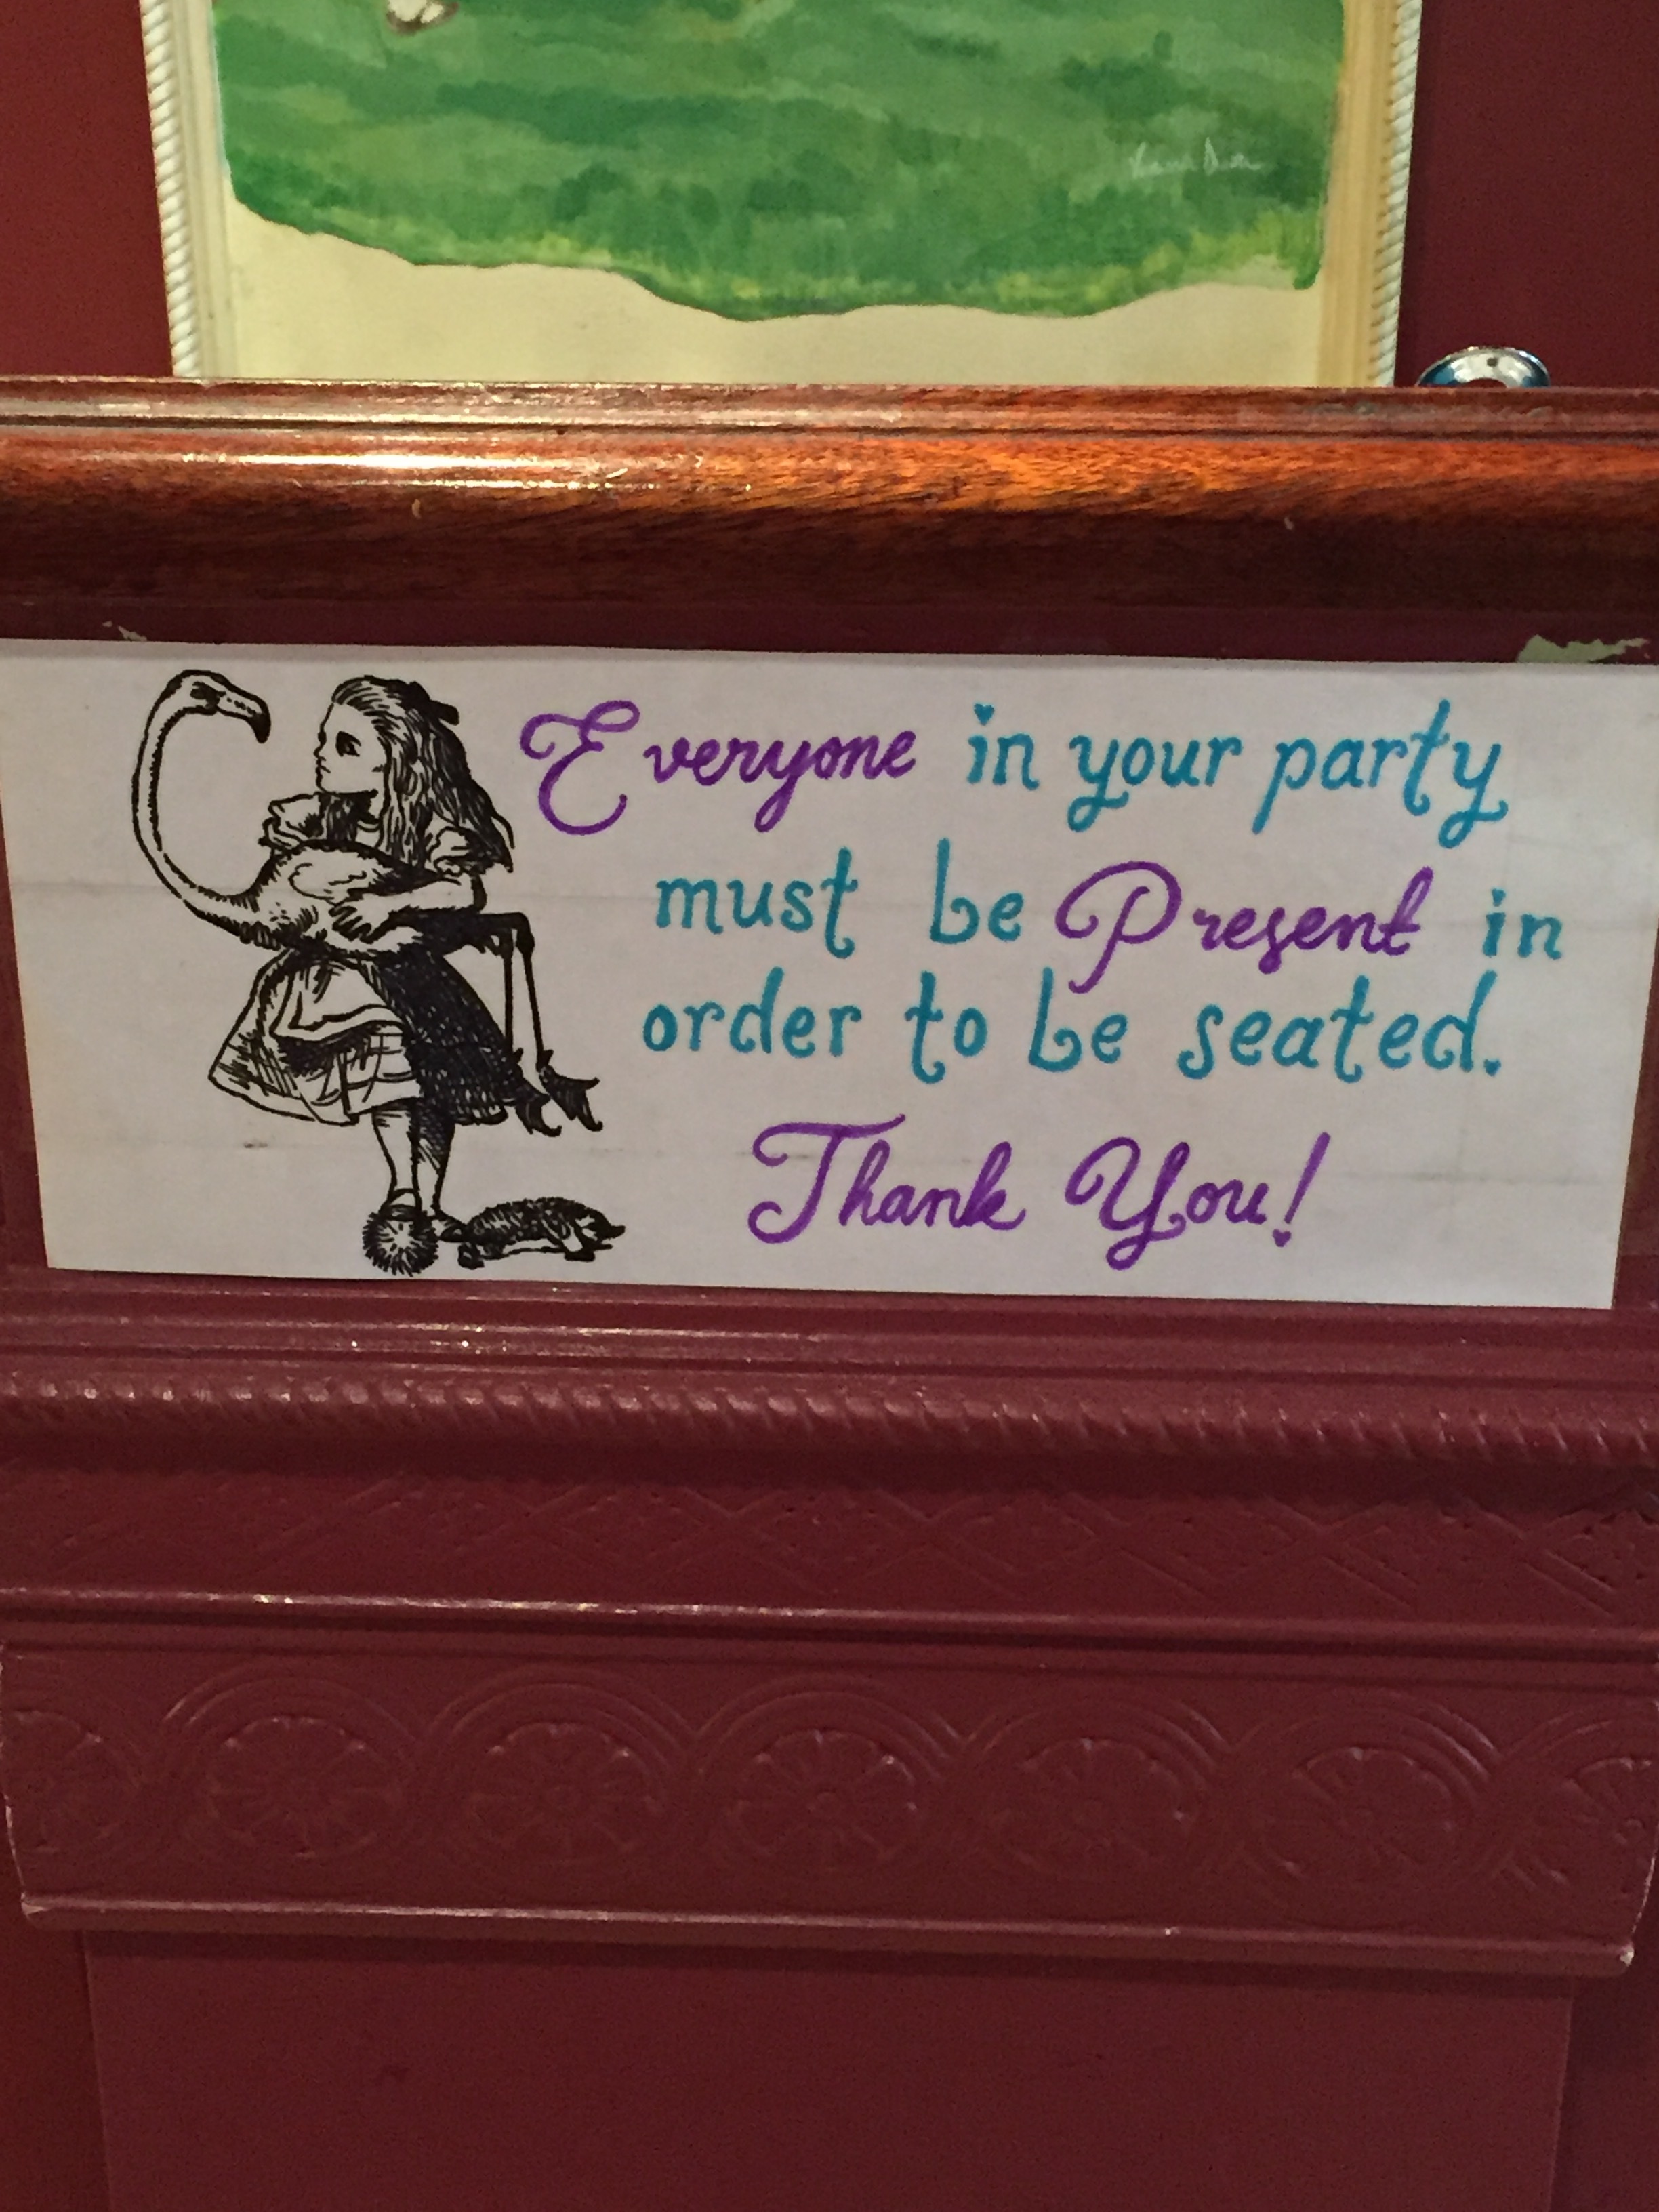 Everyone in your party
must be Present in
order to be seated.
Thank You!